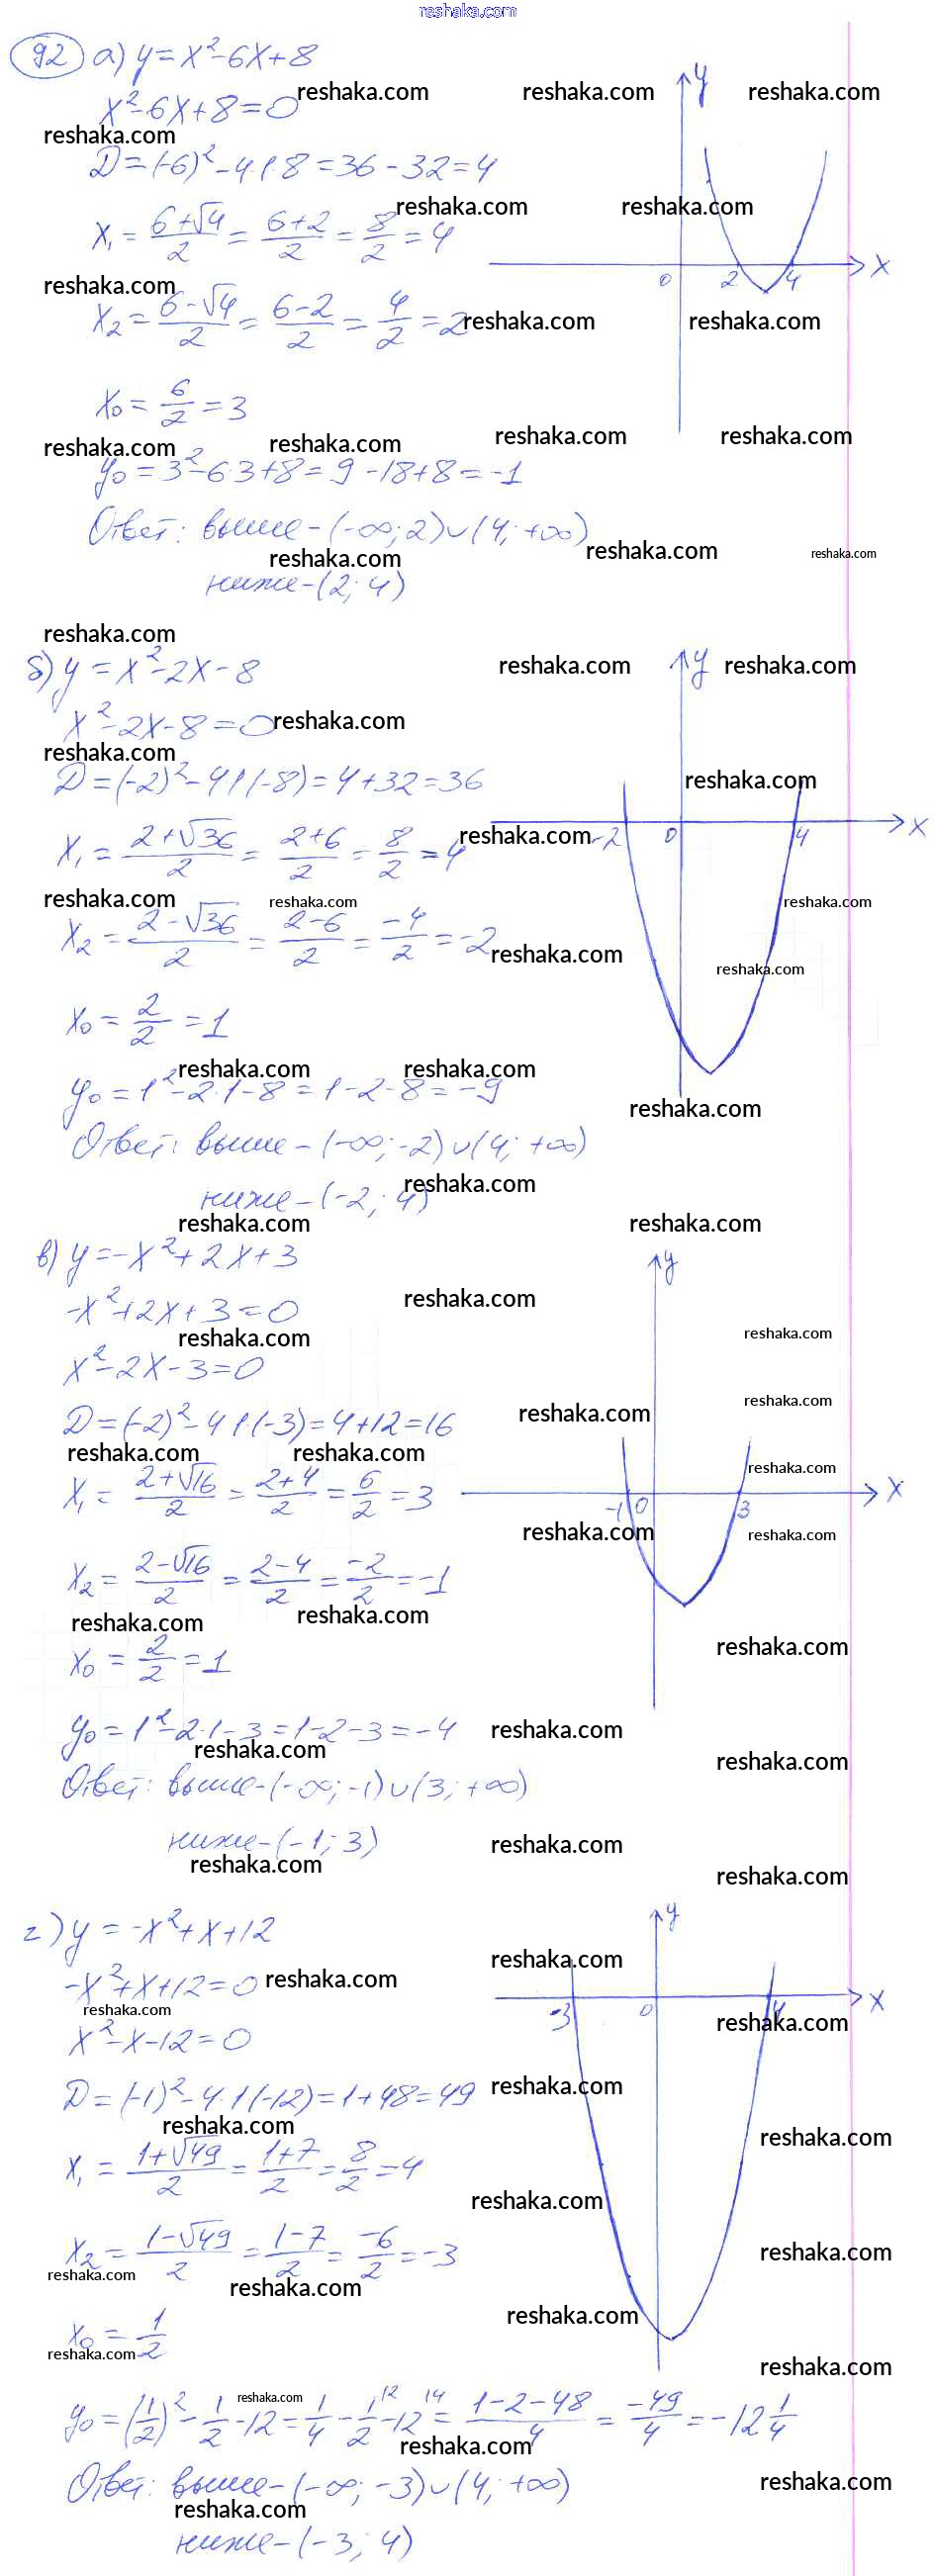 reshaka.com
92 а) y=x²-6x+8
x²-6x+8=0
D=(-6)²-4·1·8=36-32=4
x₁=(6+√4)/2=(6+2)/2=8/2=4
x₂=(6-√4)/2=(6-2)/2=4/2=2
x₀=6/2=3
y₀=3²-6·3+8=9-18+8=-1
Ответ: выше-(-∞;2)∪(4;+∞)
ниже-(2;4)
y
x
0 2 4
б) y=x²-2x-8
x²-2x-8=0
D=(-2)²-4·1·(-8)=4+32=36
x₁=(2+√36)/2=(2+6)/2=8/2=4
x₂=(2-√36)/2=(2-6)/2=-4/2=-2
x₀=2/2=1
y₀=1²-2·1-8=1-2-8=-9
Ответ: выше-(-∞;-2)∪(4;+∞)
ниже-(-2;4)
y
x
-2 0 4
в) y=-x²+2x+3
-x²+2x+3=0
x²-2x-3=0
D=(-2)²-4·1·(-3)=4+12=16
x₁=(2+√16)/2=(2+4)/2=6/2=3
x₂=(2-√16)/2=(2-4)/2=-2/2=-1
x₀=2/2=1
y₀=1²-2·1-3=1-2-3=-4
Ответ: выше-(-∞;-1)∪(3;+∞)
ниже-(-1;3)
y
x
-1 0 3
г) y=-x²+x+12
-x²+x+12=0
x²-x-12=0
D=(-1)²-4·1·(-12)=1+48=49
x₁=(1+√49)/2=(1+7)/2=8/2=4
x₂=(1-√49)/2=(1-7)/2=-6/2=-3
x₀=1/2
y₀=(1/2)²-1/2-12=1/4-1/2-12=(1-2-48)/4=-49/4=-12 1/4
Ответ: выше-(-∞;-3)∪(4;+∞)
ниже-(-3;4)
y
x
-3 0 4